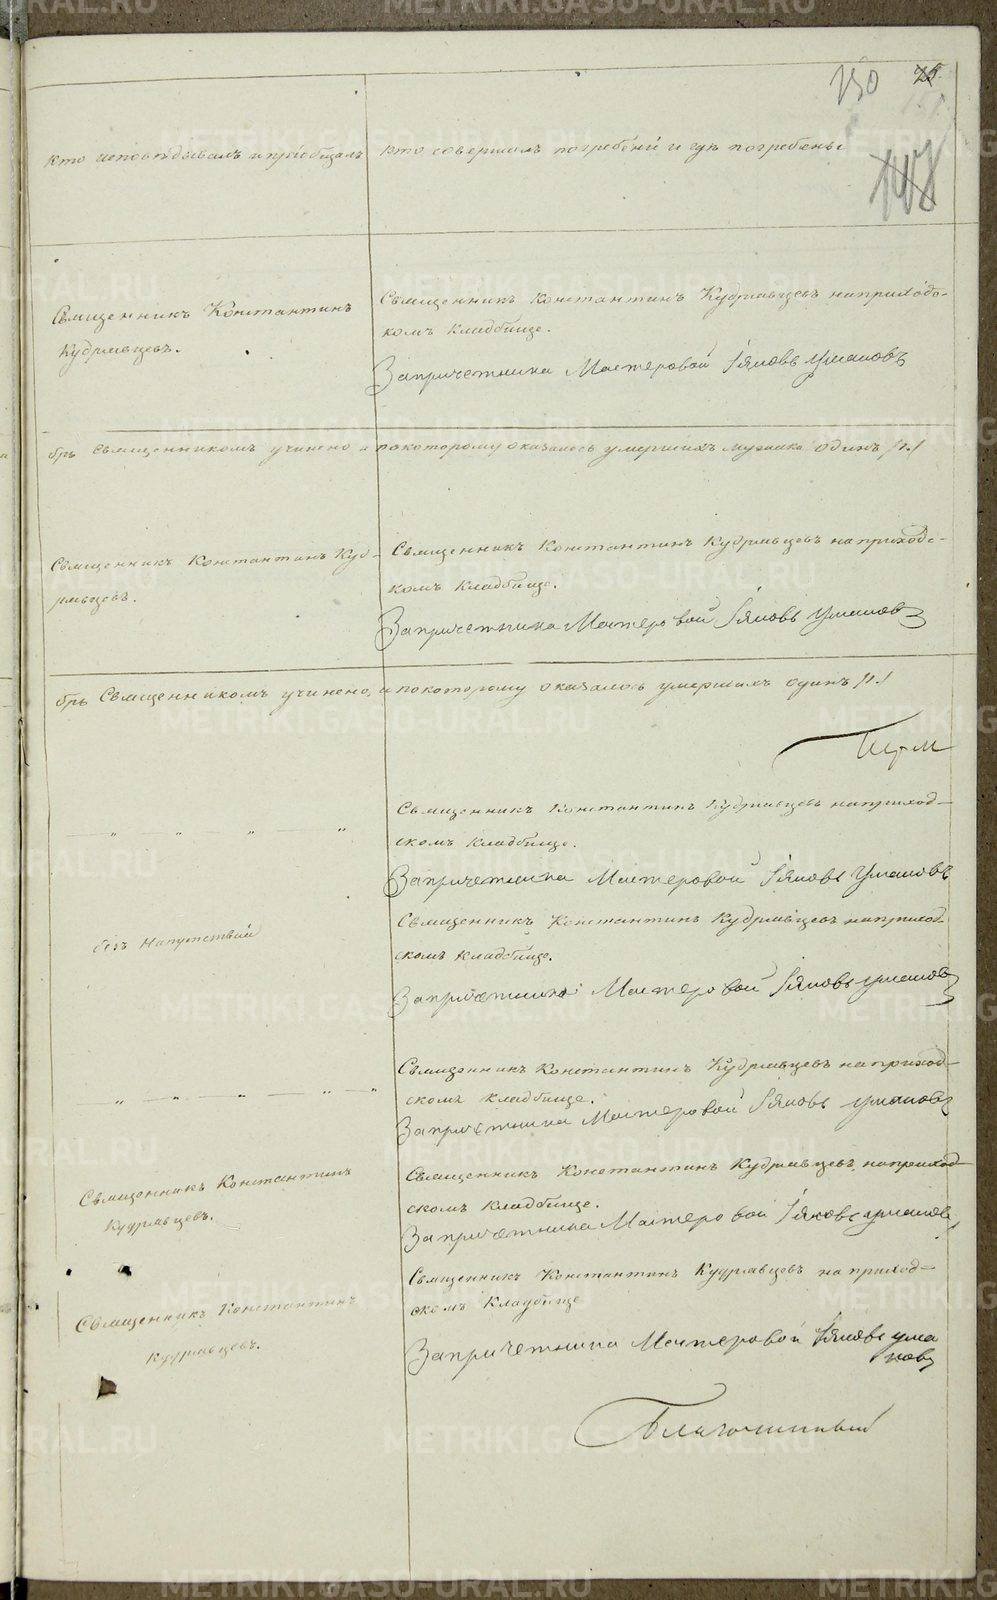 150 25
147
кто исповѣдывалъ и приобщалъ
кто совершалъ погребенiй и где погребены
Священникъ Константинъ
Кудрявцевъ.
Священникъ Константинъ Кудрявцевъ на приходс-
комъ кладбище.
За причетника Мастеровой Iяковъ Умановъ
брь Священникомъ учинено и по которому оказалось умершихъ мужска один /1./
Священникъ Константинъ Куд-
рявцевъ.
Священникъ Константинъ Кудрявцевъ на приходс-
комъ кладбище.
За причетника Мастеровой Iяковъ Умановъ
брь Священникомъ учинено, и по которому оказалось умершихъ один /1./
Священникъ Константинъ Кудрявцевъ на приход-
скомъ кладбище.
За причетника Мастеровой Iяковъ Умановъ
безъ напутствiй
Священникъ Константинъ Кудрявцевъ на приход-
скомъ кладбище.
За причетника Мастеровой Iяковъ Умановъ
Священникъ Константинъ Кудрявцевъ на приход-
скомъ кладбище.
За причетника Мастеровой Iяковъ Умановъ
Священникъ Константинъ
Кудрявцевъ.
Священникъ Константинъ Кудрявцевъ на приход-
скомъ кладбище.
За причетника Мастеровой Iяковъ Умановъ
Священникъ Константинъ
Кудрявцевъ.
Священникъ Константинъ Кудрявцевъ на приход-
скомъ кладбище
За причетника Мастеровой Iяковъ Ума
новъ
Благочинный
METRIKI.GASO-URAL.RU